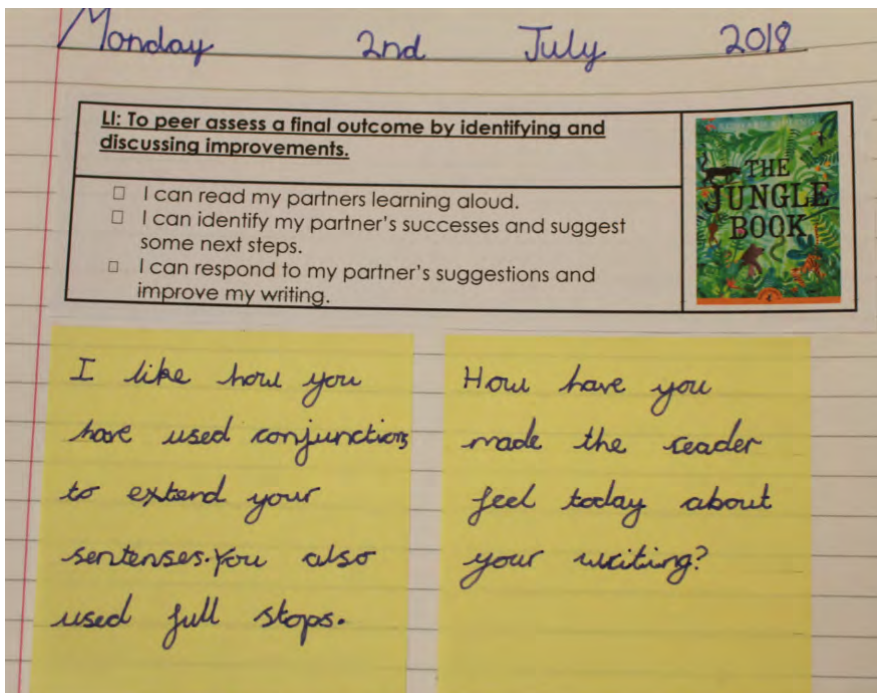 Monday 2nd July 2018
LI: To peer assess a final outcome by identifying and
discussing improvements.
☐ I can read my partners learning aloud.
☐ I can identify my partner's successes and suggest
some next steps.
☐ I can respond to my partner's suggestions and
improve my writing.
RUDYARD KIPLING
THE
JUNGLE
BOOK
I like how you
have used conjunctions
to extend your
sentenses. You also
used full stops.
How have you
made the reader
feel today about
your writing?